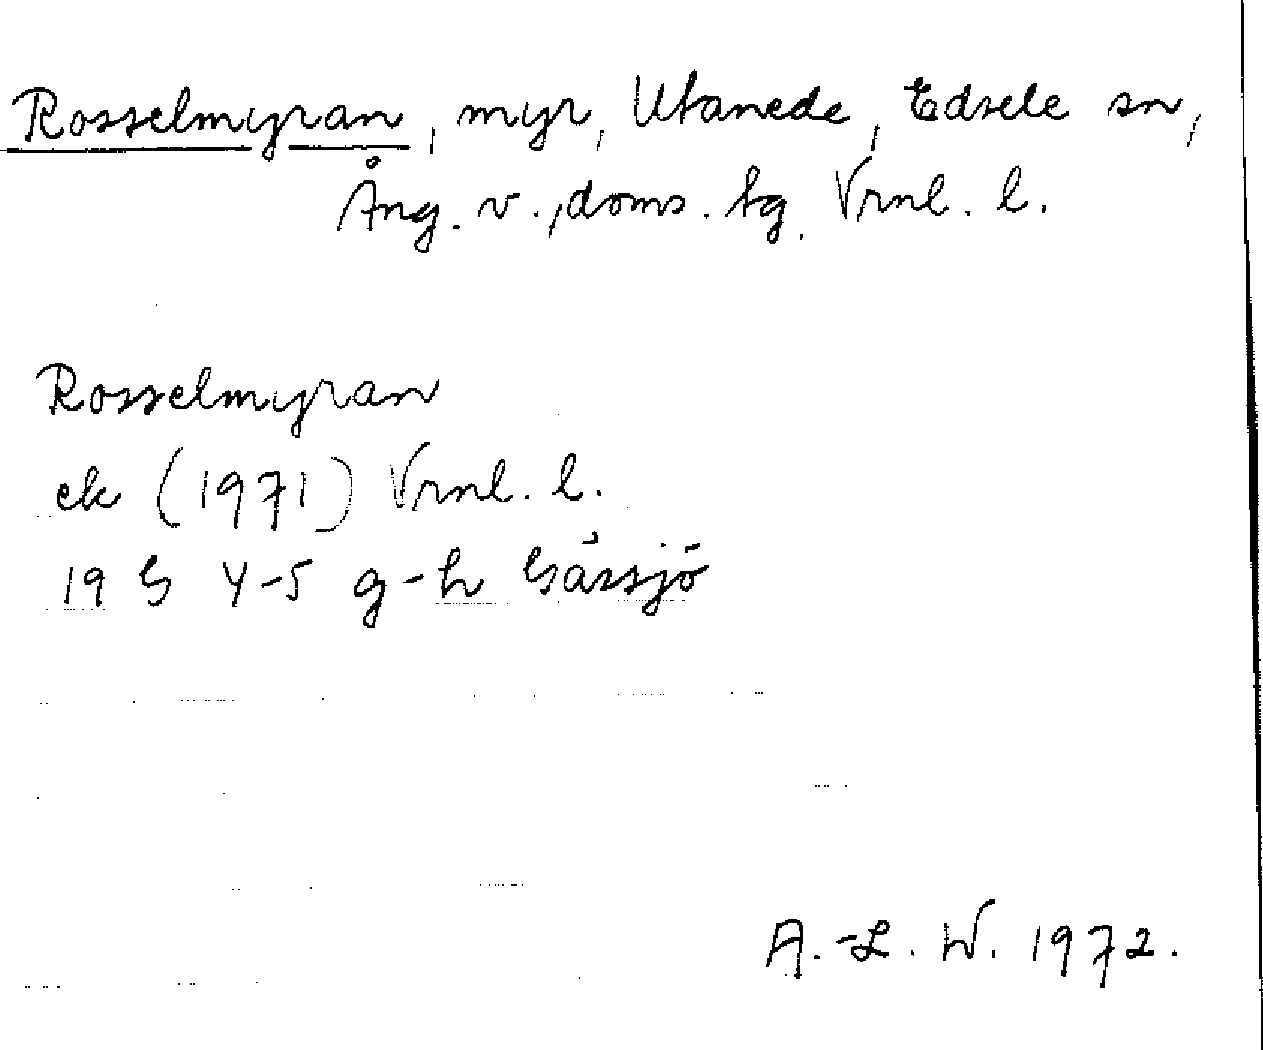 Rosselmyran, myr, Utanede, Edsele sn,
Ång. v., doms. tg. Vrnl. l.
Rosselmyran
ek (1971) Vrnl. l.
19 G 4-5 g-h Gåssjö
A.-L. W. 1972.